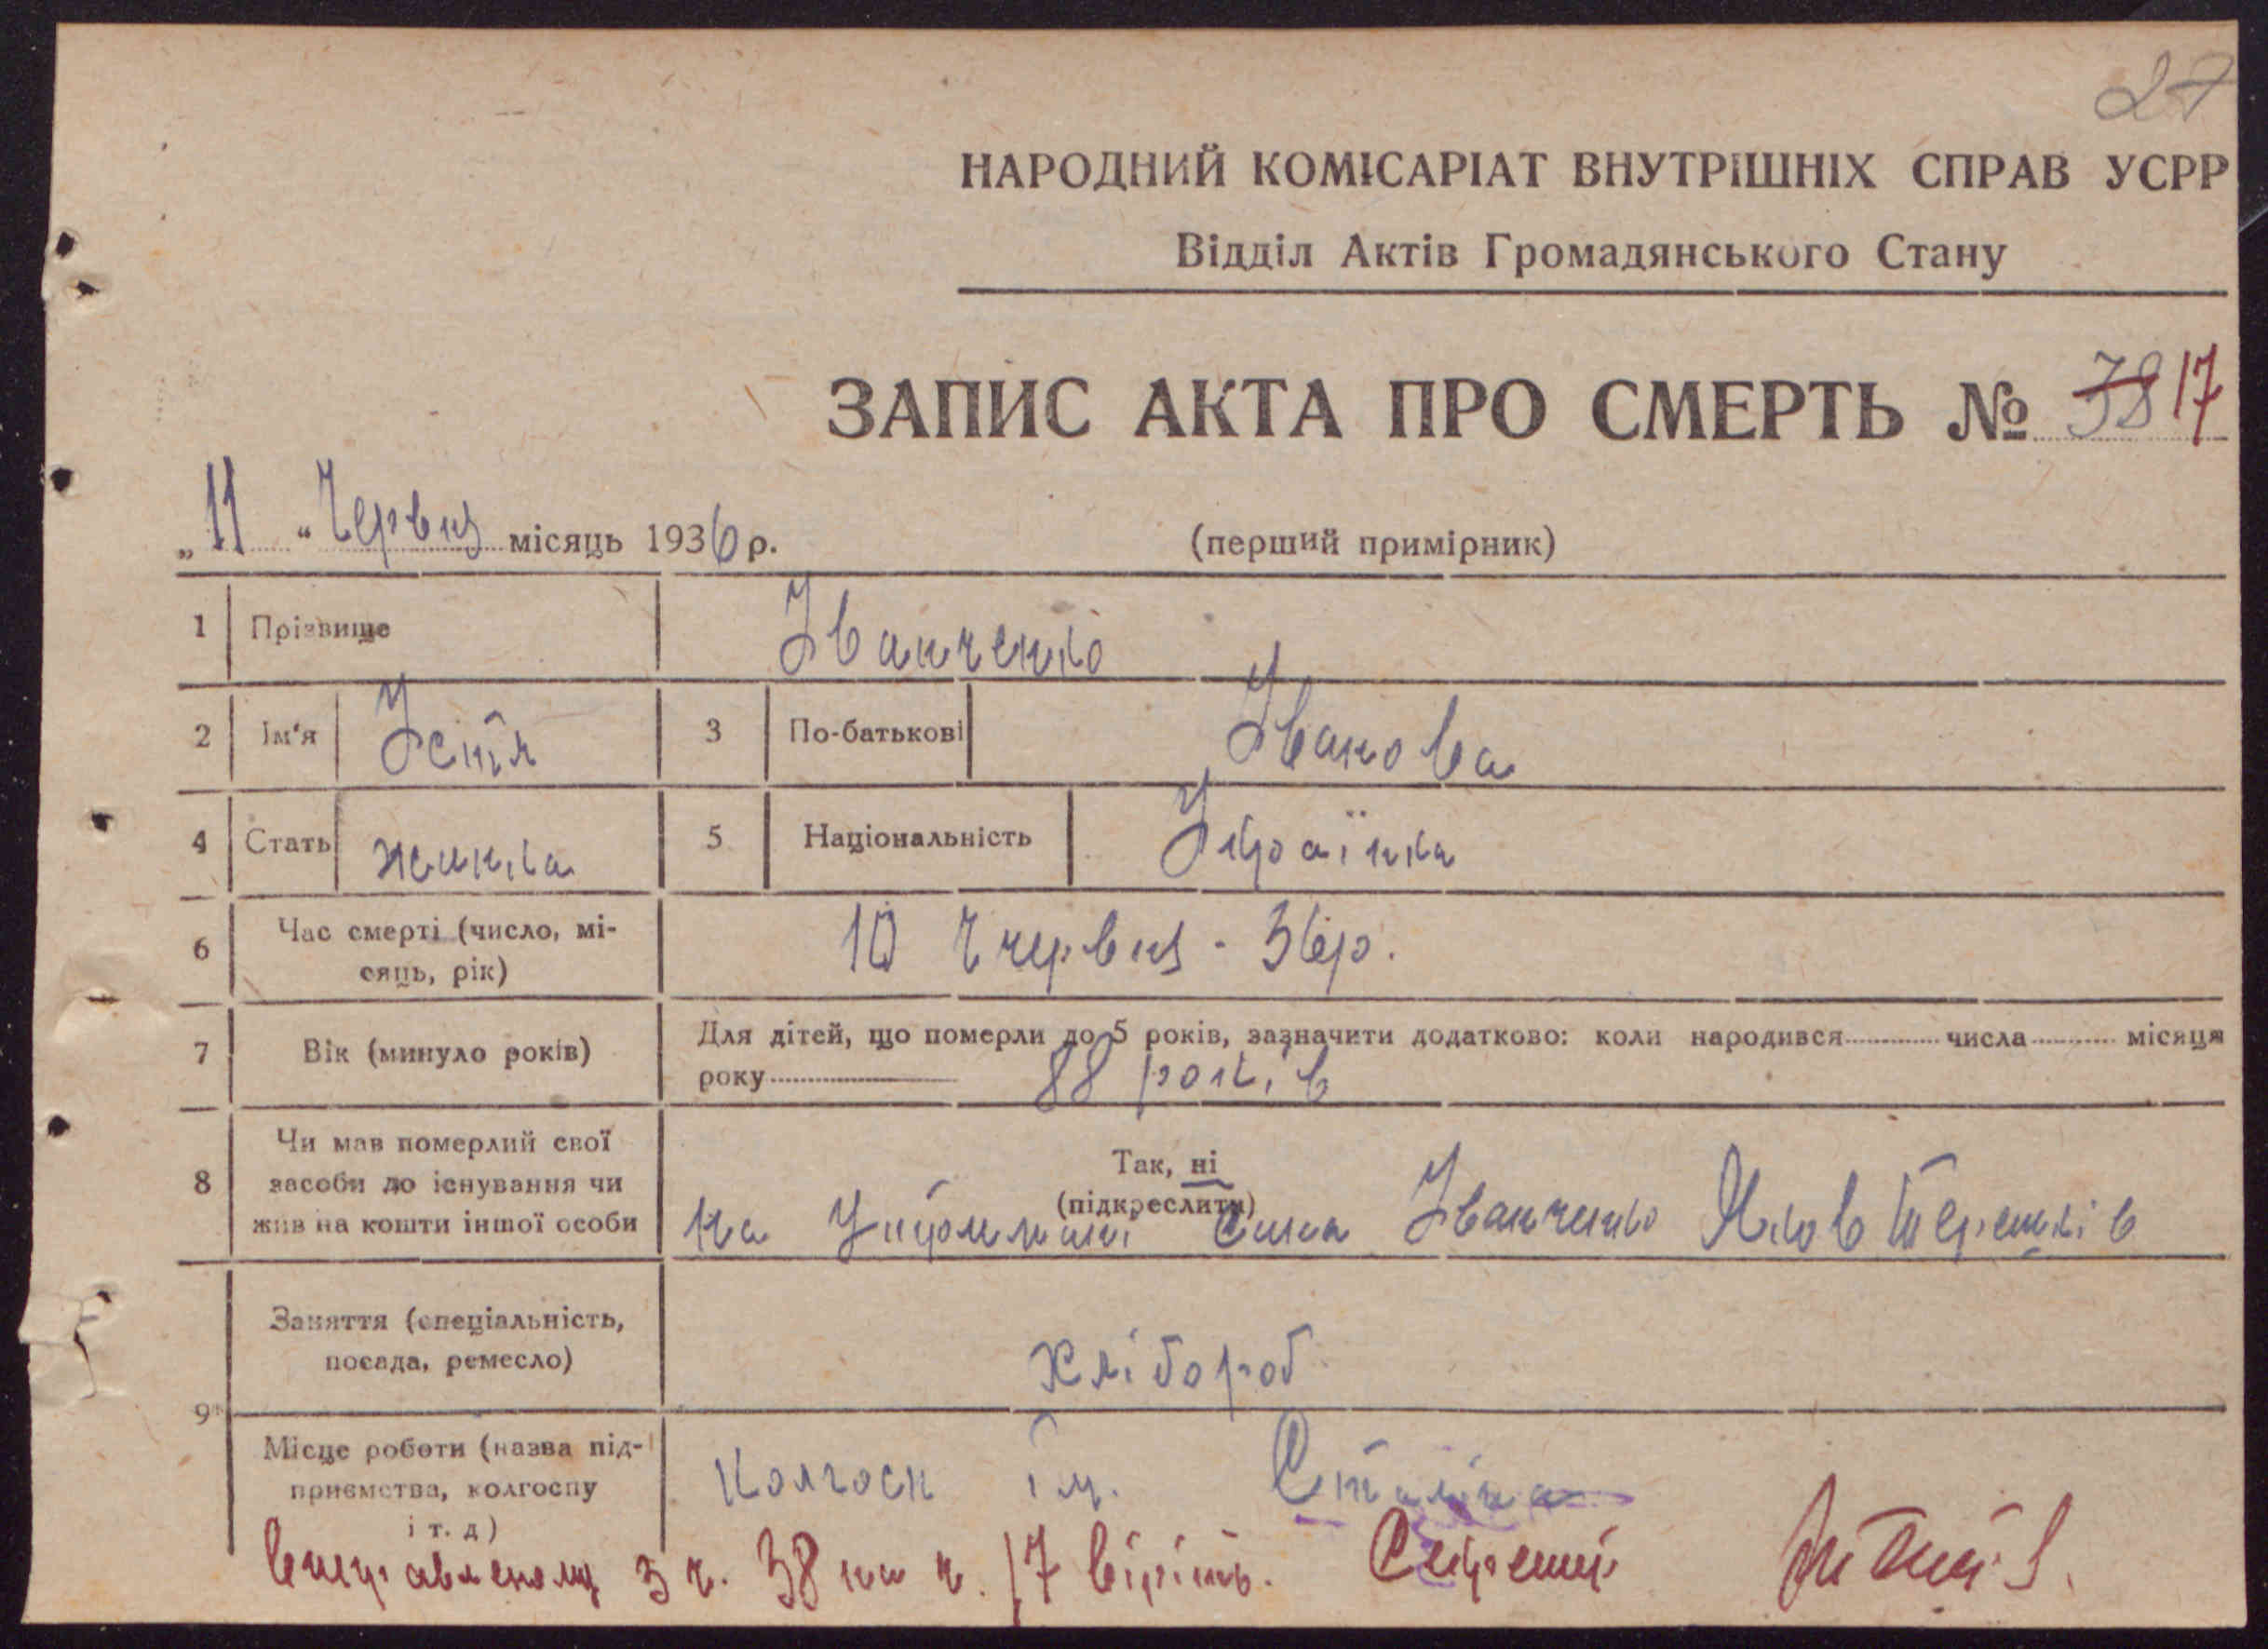 27
НАРОДНИЙ КОМІСАРІАТ ВНУТРІШНІХ СПРАВ УСРР
Відділ Актів Громадянського Стану
ЗАПИС АКТА ПРО СМЕРТЬ № 38 17
„11“ Червня місяць 1936 р. (перший примірник)
1 Прізвище Іванченко
2 Ім'я Устя 3 По-батькові Іванова
4 Стать жинка 5 Національність Українка
6 Час смерті (число, мі-
сяць, рік) 10 Ччервня - 36р.
7 Вік (минуло років) Для дітей, що померли до 5 років, зазначити додатково: коли народився числа місяця
року 88 років
8 Чи мав померлий свої
засоби до існування чи
жив на кошти іншої особи
Так, ні
(підкреслити)
на Утримані Сина Іванченко Яков
9 Заняття (спеціальність,
посада, ремесло) Хлібороб
Місце роботи (назва під-
приємства, колгоспу
і т. д) Колгосп ім. Сталіна
виправленому з ч. 38 на ч. 17 вірить.